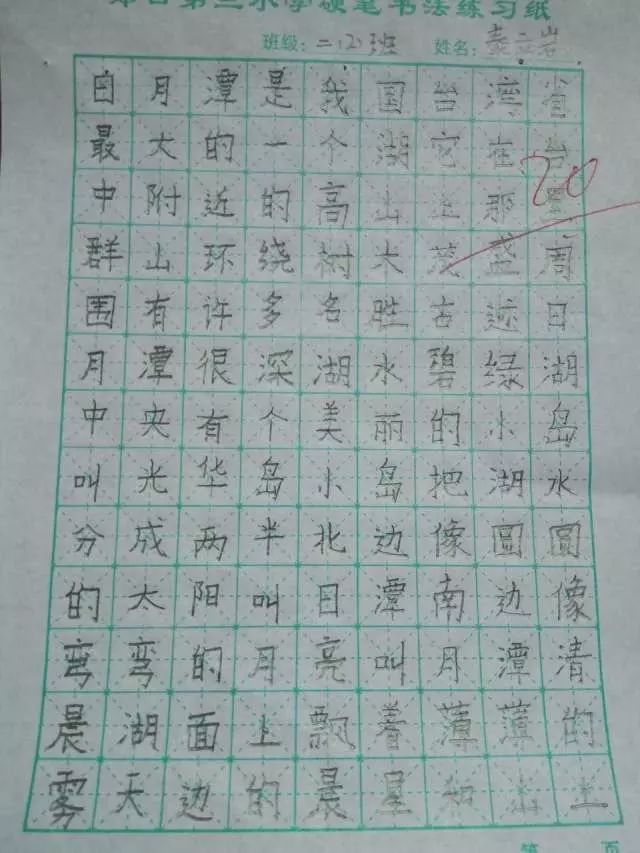 第三小学硬笔书法练习纸
班级：二（2）班 姓名：
日月潭是我国台湾省
最大的一个湖它在台
中附近的高山上那里
群山环绕树木茂盛周
围有许多名胜古迹日
月潭很深湖水碧绿湖
中央有个美丽的小岛
叫光华岛小岛把湖水
分成两半北边像圆圆
的太阳叫日潭南边像
弯弯的月亮叫月潭清
晨湖面上飘着薄薄的
雾天边的晨星和山上
第 页